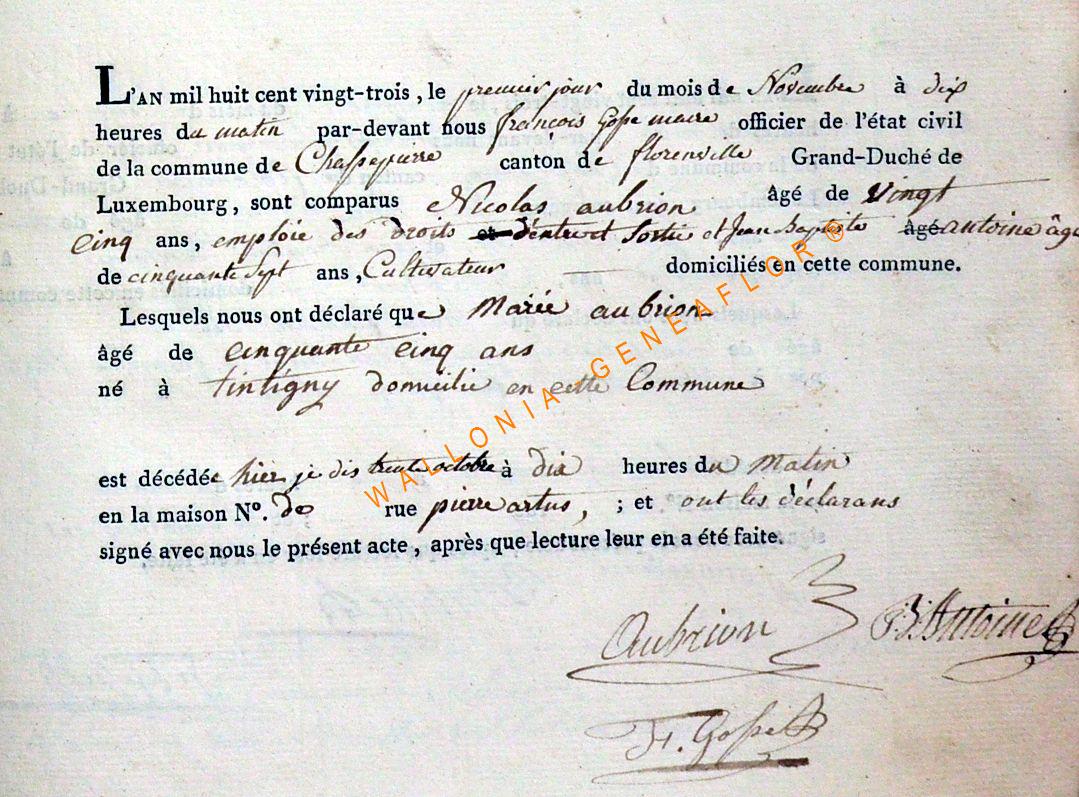 L'AN mil huit cent vingt-trois, le premier jour du mois de Novembre à dix
heures du matin par-devant nous françois Gosse maire officier de l'état civil
de la commune de Chassepierre canton de florenville Grand-Duché de
Luxembourg, sont comparus Nicolas aubrion âgé de vingt
cinq ans, emploié des droits et d'entré et Sortie et Jean Baptiste âgé antoine âgé
de cinquante Sept ans, Cultivateur domiciliés en cette commune.
Lesquels nous ont déclaré que Marie aubrion
âgé de cinquante cinq ans
né à tintigny domicilié en cette Commune
est décédée hier je dis trente octobre à dix heures du Matin
en la maison N°. de rue pierre artus, ; et ont les déclarans
signé avec nous le présent acte, après que lecture leur en a été faite.
Aubrion J.B. Antoine
F. Gosse
WALLONIA-GENEAFLOR ®